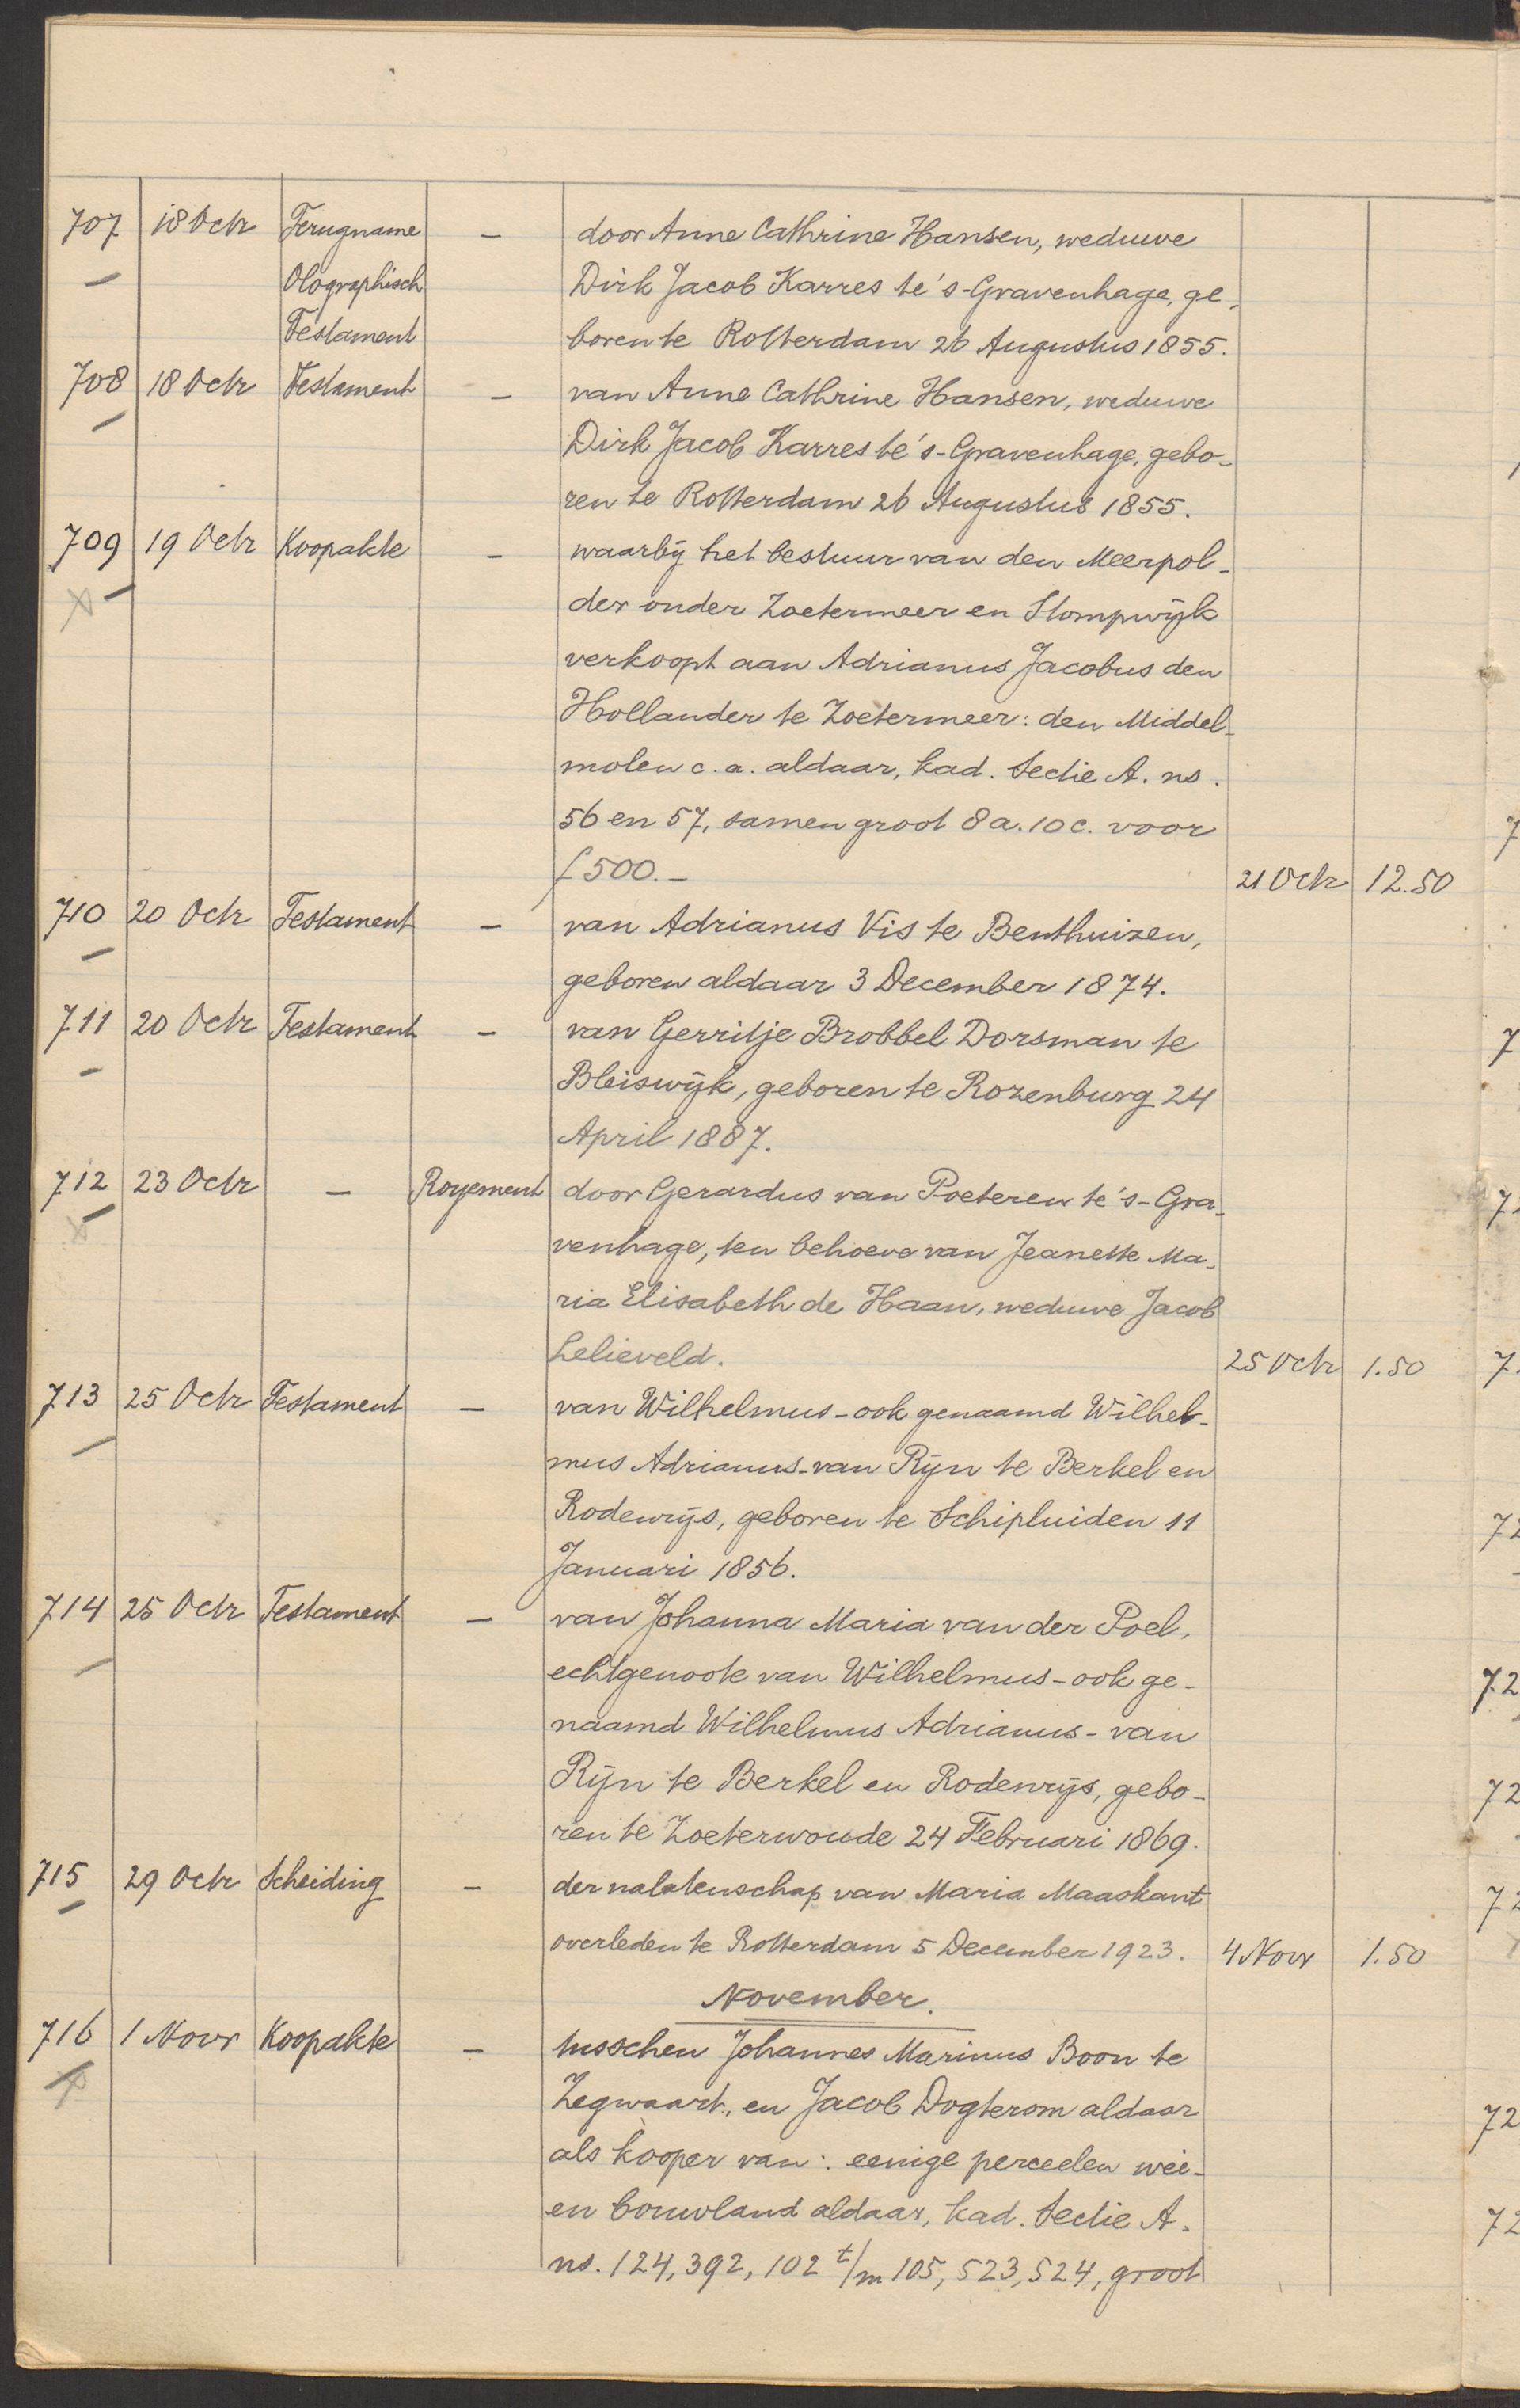 707 18 Octr Terugname — door Anne Cathrine Hansen, weduwe
Olographisch Dirk Jacob Karres te 's-Gravenhage, ge-
Testament boren te Rotterdam 26 Augustus 1855.
708 18 Octr Testament — van Anne Cathrine Hansen, weduwe
Dirk Jacob Karres te 's-Gravenhage, gebo-
ren te Rotterdam 26 Augustus 1855.
709 19 Octr Koopakte — waarbij het bestuur van den Meerpol-
der onder Zoetermeer en Stompwijk
verkoopt aan Adrianus Jacobus den
Hollander te Zoetermeer: den Middel-
molen c.a. aldaar, kad. Sectie A. ns.
56 en 57, samen groot 8 a. 10 c. voor
f 500.- 21 Octr 12.50
710 20 Octr Testament — van Adrianus Vis te Benthuizen,
geboren aldaar 3 December 1874.
711 20 Octr Testament — van Gerritje Brobbel Dorsman te
Bleiswijk, geboren te Rozenburg 24
April 1887.
712 23 Octr — Royement door Gerardus van Poeteren te 's-Gra-
venhage, ten behoeve van Jeanette Ma-
ria Elisabeth de Haan, weduwe Jacob
Lelieveld. 25 Octr 1.50
713 25 Octr Testament — van Wilhelmus - ook genaamd Wilhel-
mus Adrianus - van Rijn te Berkel en
Rodenrijs, geboren te Schipluiden 11
Januari 1856.
714 25 Octr Testament — van Johanna Maria van der Poel,
echtgenoote van Wilhelmus - ook ge-
naamd Wilhelmus Adrianus - van
Rijn te Berkel en Rodenrijs, gebo-
ren te Zoeterwoude 24 Februari 1869.
715 29 Octr Scheiding — der nalatenschap van Maria Maaskant
overleden te Rotterdam 5 December 1923. 4 Novr 1.50
November.
716 1 Novr Koopakte — tusschen Johannes Marinus Boon te
Zegwaart, en Jacob Dogterom aldaar
als kooper van: eenige perceelen wei-
en bouwland aldaar, kad. Sectie A.
ns. 124, 392, 102 t/m 105, 523, 524, groot